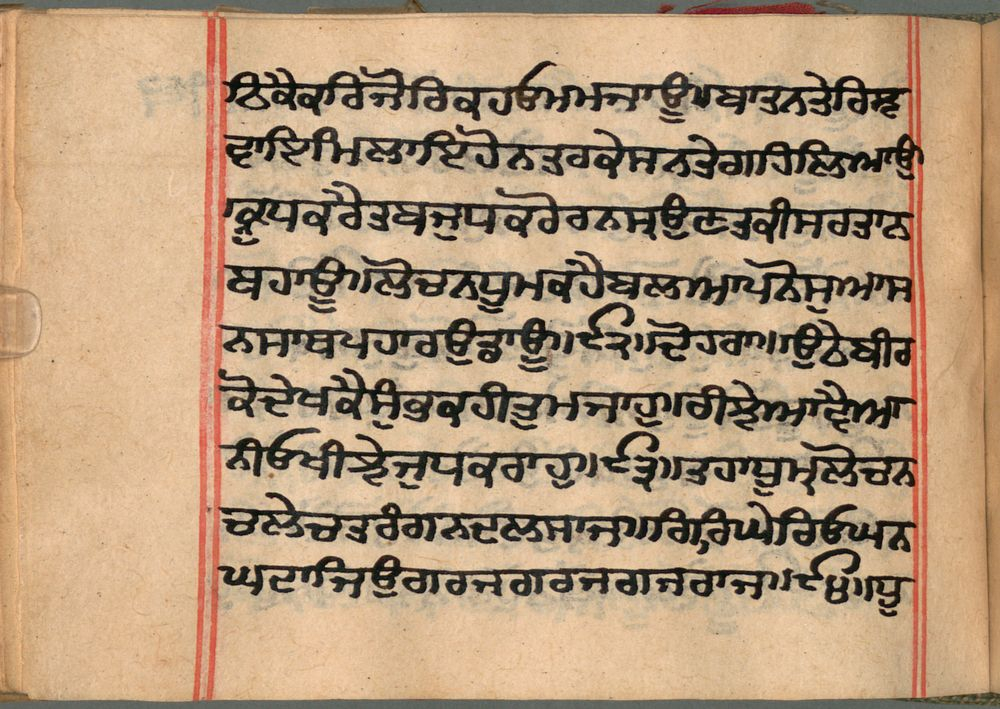 ਠਿਕੈਕਰਿਜੋਰਿਕਹਓਮਮਜਾਊਂ॥ਬਾਤਨਤੇਰਿਝ
ਵਾਇਮਿਲਾਇਹੋਨਤਰਕੇਸਨਤੇਗਹਿਲਿਆਊਂ
ਕ੍ਰੁਪਕਰੈਤਬਜੁਪਕਰੋਰਨਸ੍ਰਉਣਤਕੀਸਰਤਾਨ
ਬਹਾਊਂ॥ਲੋਚਨਧੂਮਕਹੈਬਲਆਪਨੋਸੁਆਸ
ਨਸਾਥਪਹਾਰਉਡਾਊਂ॥੯੨॥ਦੋਹਰਾ॥ਉਠੇਬੀਰ
ਕੋਦੇਖਕੈਸੁੰਭਕਹੀਤੁਮਜਾਹੁ॥ਰੀਝੇਆਵੈਆ
ਨੀਓਖੀਝੇਜੁਪਕਰਾਹੁ॥੯੩॥ਤਹਾਧੂਮ੍ਰਲੋਚਨ
ਚਲੇਚਤਰੰਗਨਦਲਸਾਜ॥ਗਿਰਿਘੇਰਿਓਘਨ
ਘਟਾਜਿਉਂਗਰਜਗਰਜਗਜਰਾਜ॥੯੪॥ਧੂ